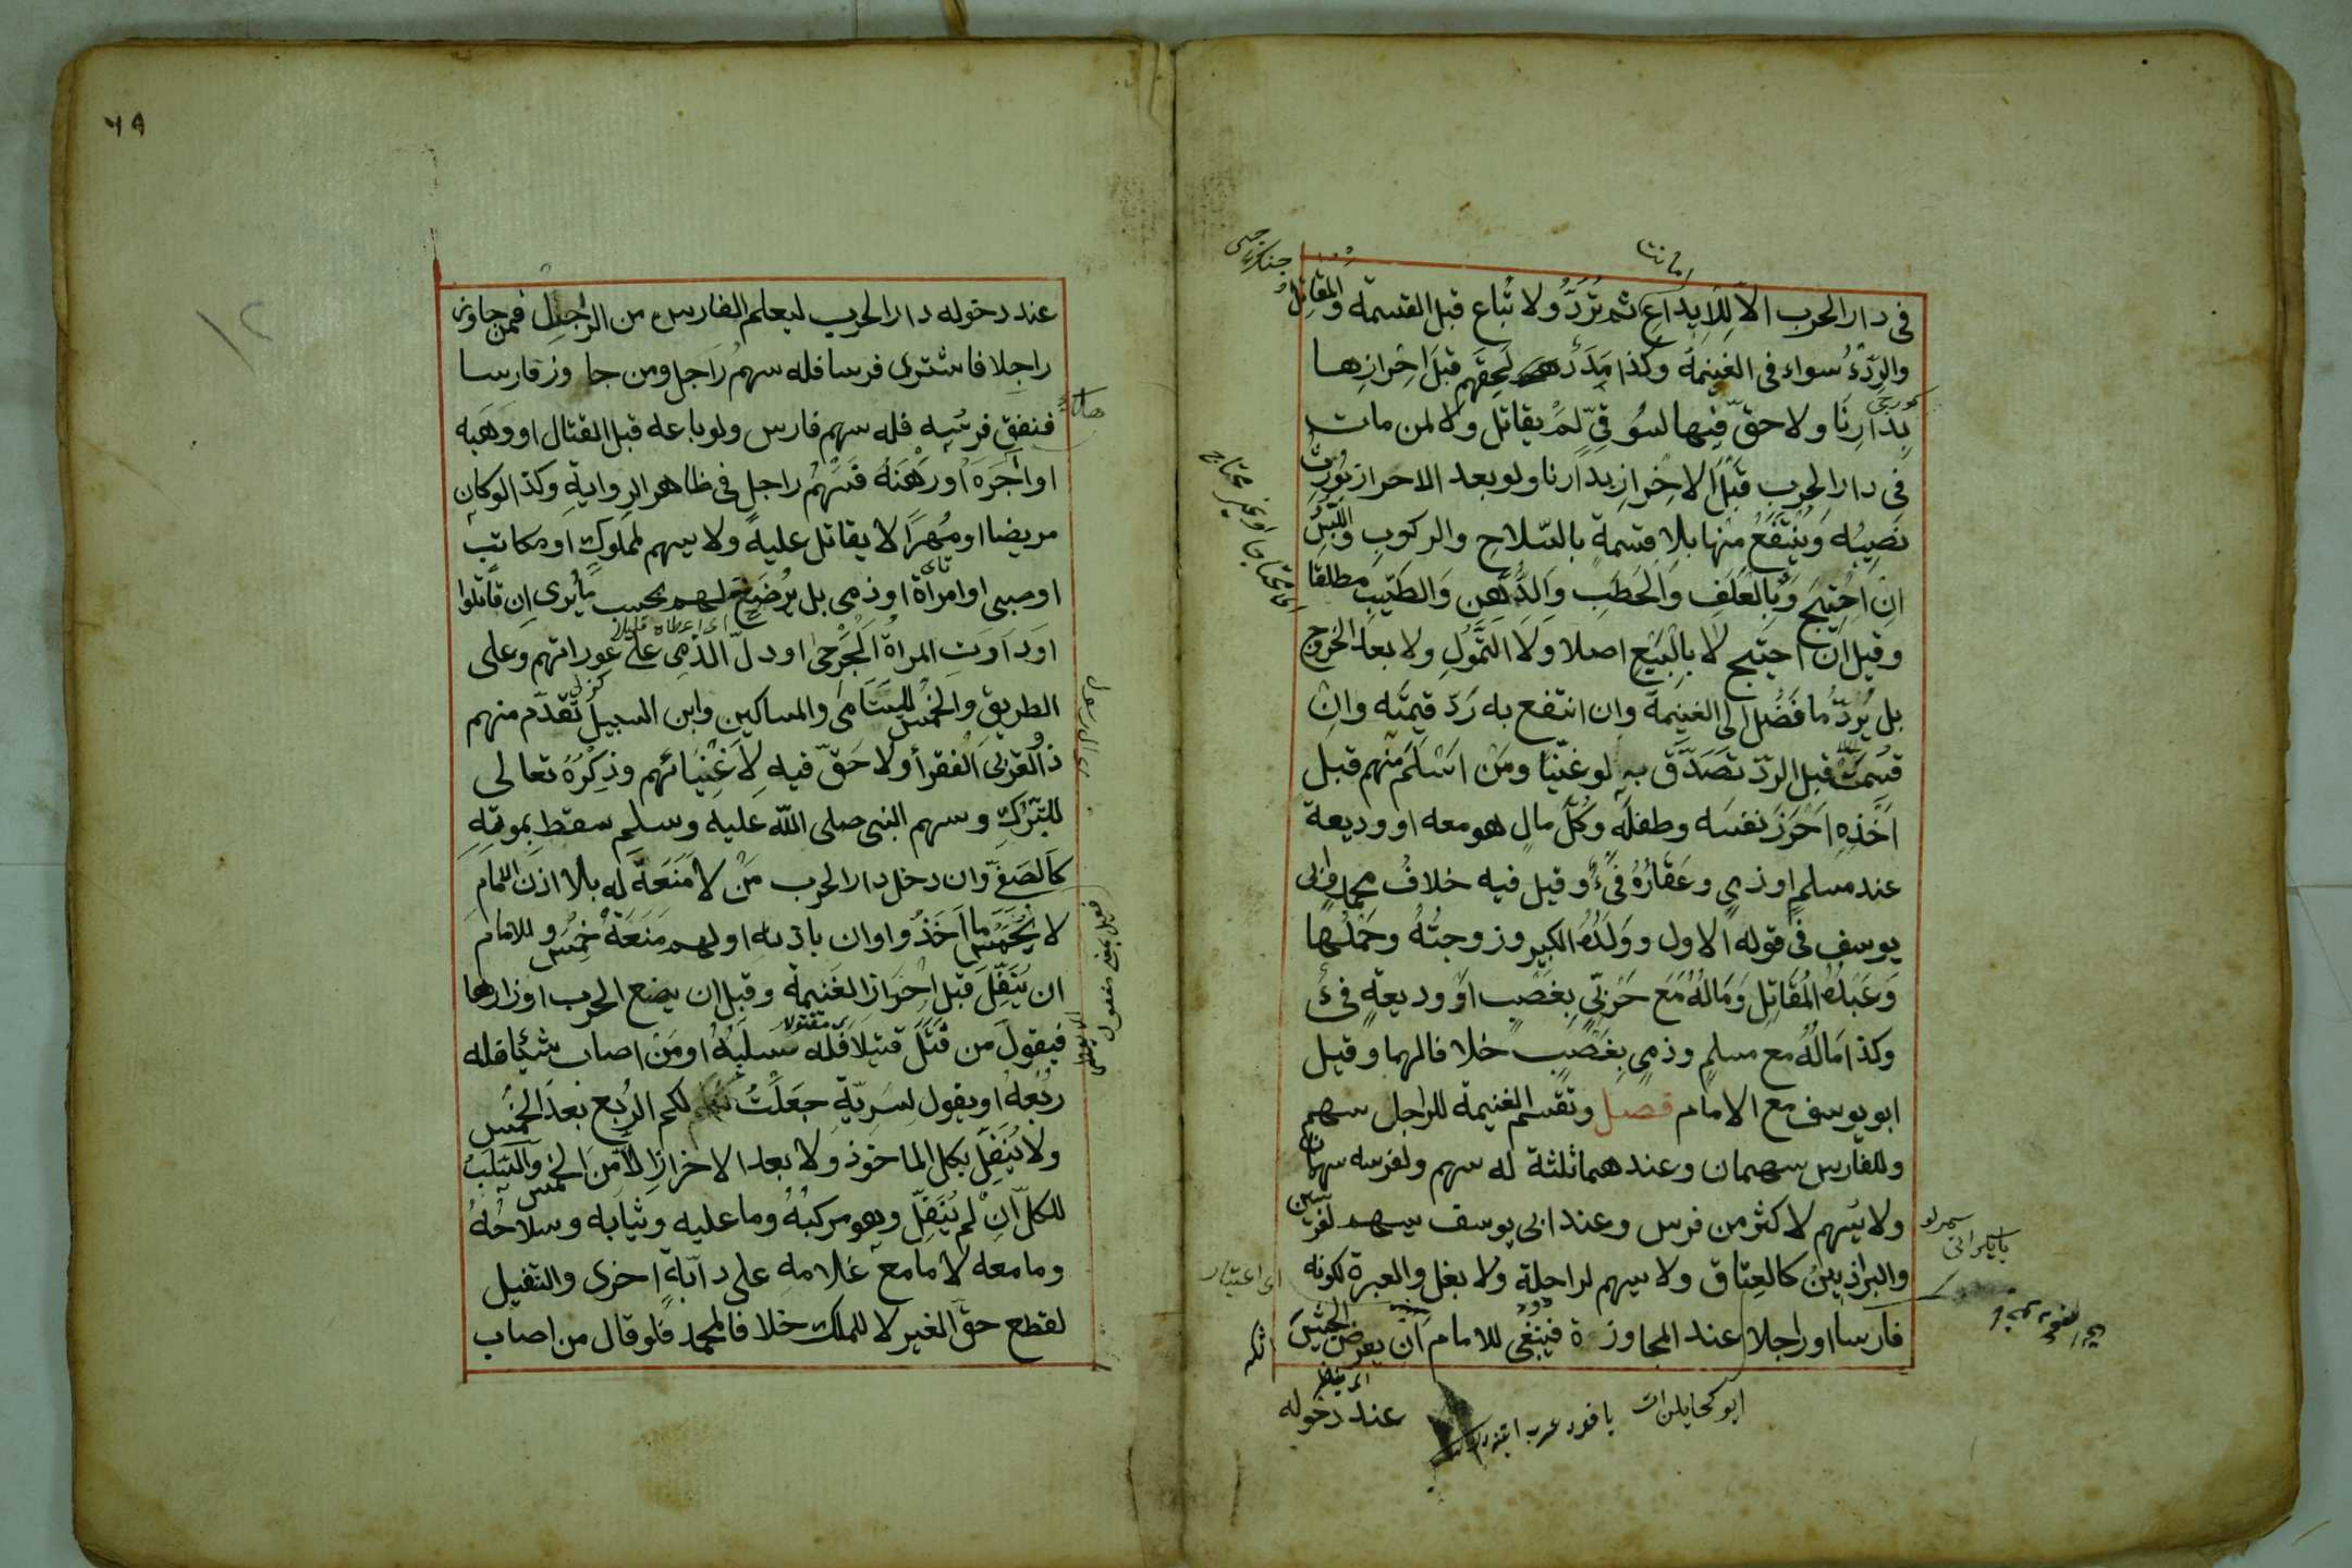 امانت
فى دار الحرب الا للايداع ثم تُرَدُّ ولا تُباع قبل القسمة والمقاتل
والرّدْءُ سواء فى الغنيمة وكذا مَدَدٌ لَحِقَهم قبل احرازها
بدارِنَا ولا حقّ فيها لسُوقىّ لَمْ يقاتل ولا لمن مات
فى دار الحرب قَبْلَ الاحرازِ بدارنا ولو بعد الاحراز يُورث
نَصِيبُه وَيُنْتَفَعُ مِنْها بلا قسمة بالسّلاح والركوبِ واللُّبْسُ
اِنِ اُحْتِيجَ وَبِالعَلَفِ وَالحَطَبِ وَالدُّهنِ وَالطِّيبِ مطلقا
وقيل اِنْ احتيج لا بِالْبَيْعِ اصلا وَلَا التَّمَوُّلِ ولا بعد الخروج
بل يُرَدُّ ما فَضَلَ الى الغنيمة وان انتفع به رَدّ قيمتَه وان
قسِمَتْ قبل الردّ تَصَدَّقَ به لو غنيّا ومَنْ اَسْلَمَ منهم قبل
اَخْذِهِ اَحْرَزَ نفسَه وطفلَه وكُلَّ مالٍ هو معه او وديعة
عند مسلمٍ او ذمىٍ وعَقَارُهُ فَىْءٌ وقيل فيه خلافُ محمد وابى
يوسف فى قوله الاول وَوَلَدُهُ الكبير وزوجتُهُ وحَمْلُها
وَعَبْدُهُ المُقَاتِل وَمَالُهُ مَعَ حَرْبىٍّ بِغَصْبٍ اَوْ وديعةٍ فىءٌ
وكذا مَالُهُ مع مسلمٍ وذمىٍ بِغَصْبٍ خلافا لهما وقيل
ابو يوسف مع الامام فصل وتقسم الغنيمة للراجل سهم
وللفارس سهمان وعندهما ثلثة له سهم ولفرسه سهمان
ولا يُسهم لاكثر من فرس وعند ابى يوسف يسهم لفرسين
والبراذينُ كالعِتاق ولا يسهم لراحلة ولا بغل والعبرة لكونه
فارسًا او راجلا عند المجاوزة فينبغى للامام اَن يعرض الجيش
عند دخوله
اى اعتبار
٦٩
١٢
عند دخوله دار الحرب ليعلم الفارس من الراجل فمن جاوز
راجلا فاشترى فرسا فله سهمُ رَاجل ومن جاوز فارسا
فنفق فرسُه فله سهم فارس ولو باعه قبل القتال او وَهَبَه
او آجَرَه اَو رَهَنَهُ فَسَهْمُ راجل فى ظاهر الروايةِ وكذا لو كان
مريضا او مُهْرًا لا يقاتل عليهِ ولا يسهم لمملوك او مكاتَبٍ
او صبى او امراَة او ذمى بل يُرْضَخُ لهم بحسب ما يُرى اِن قاتَلوا
اى اعطاه قليلا
اَو دَاوَتِ المراةُ الْجَرْحى او دلّ الذمى على عوراتهم وعلى
الطريقِ والخُمْس لليَتَامَى والمساكين وابن السبيل تقدّم منهم
ذو القربى الفقراُ ولا حَقّ فيه لِاَغْنِيَائهم وذِكْرُهُ تعالى
للتبّرك وسهم النبى صلى الله عليه وسلم سقط بموته
كَالصَفىّ وان دخل دار الحرب مَنْ لا مَنَعَةَ له بلا اذن الامام
لا يُخَمَّسُ ما اَخَذُوا وان باذنه او لهم مَنَعَةٌ خُمّس وللامام
ان يُنَفِّلَ قبل اِحْرَازِ الغَنيمة وقبل ان يضع الحرب اوزارها
فيقولَ من قَتَلَ قتيلا فَلَه سلَبُهُ او مَنْ اصاب شيئا فله
رُبُعُهُ او يقول لِسَرِيّةٍ جَعَلْتُ لكم الرُبع بَعدَ الخُمس
ولا يُنَفِّل بكل الماخوذ ولا بعد الاحرازِ الّا مِن الخمس والسَّلَبُ
للكلّ اِنْ لم يُنَفّل وهو مركبُهُ وما عليه وثيابه وسلاحُهُ
وما معه لا ما مع غلامهِ على دآبّةٍ اخرى والتنفيل
لقطع حقّ الغير لا للملك خلافا لمحمد فلو قال من اصاب
فعيل بمعنى مفعول